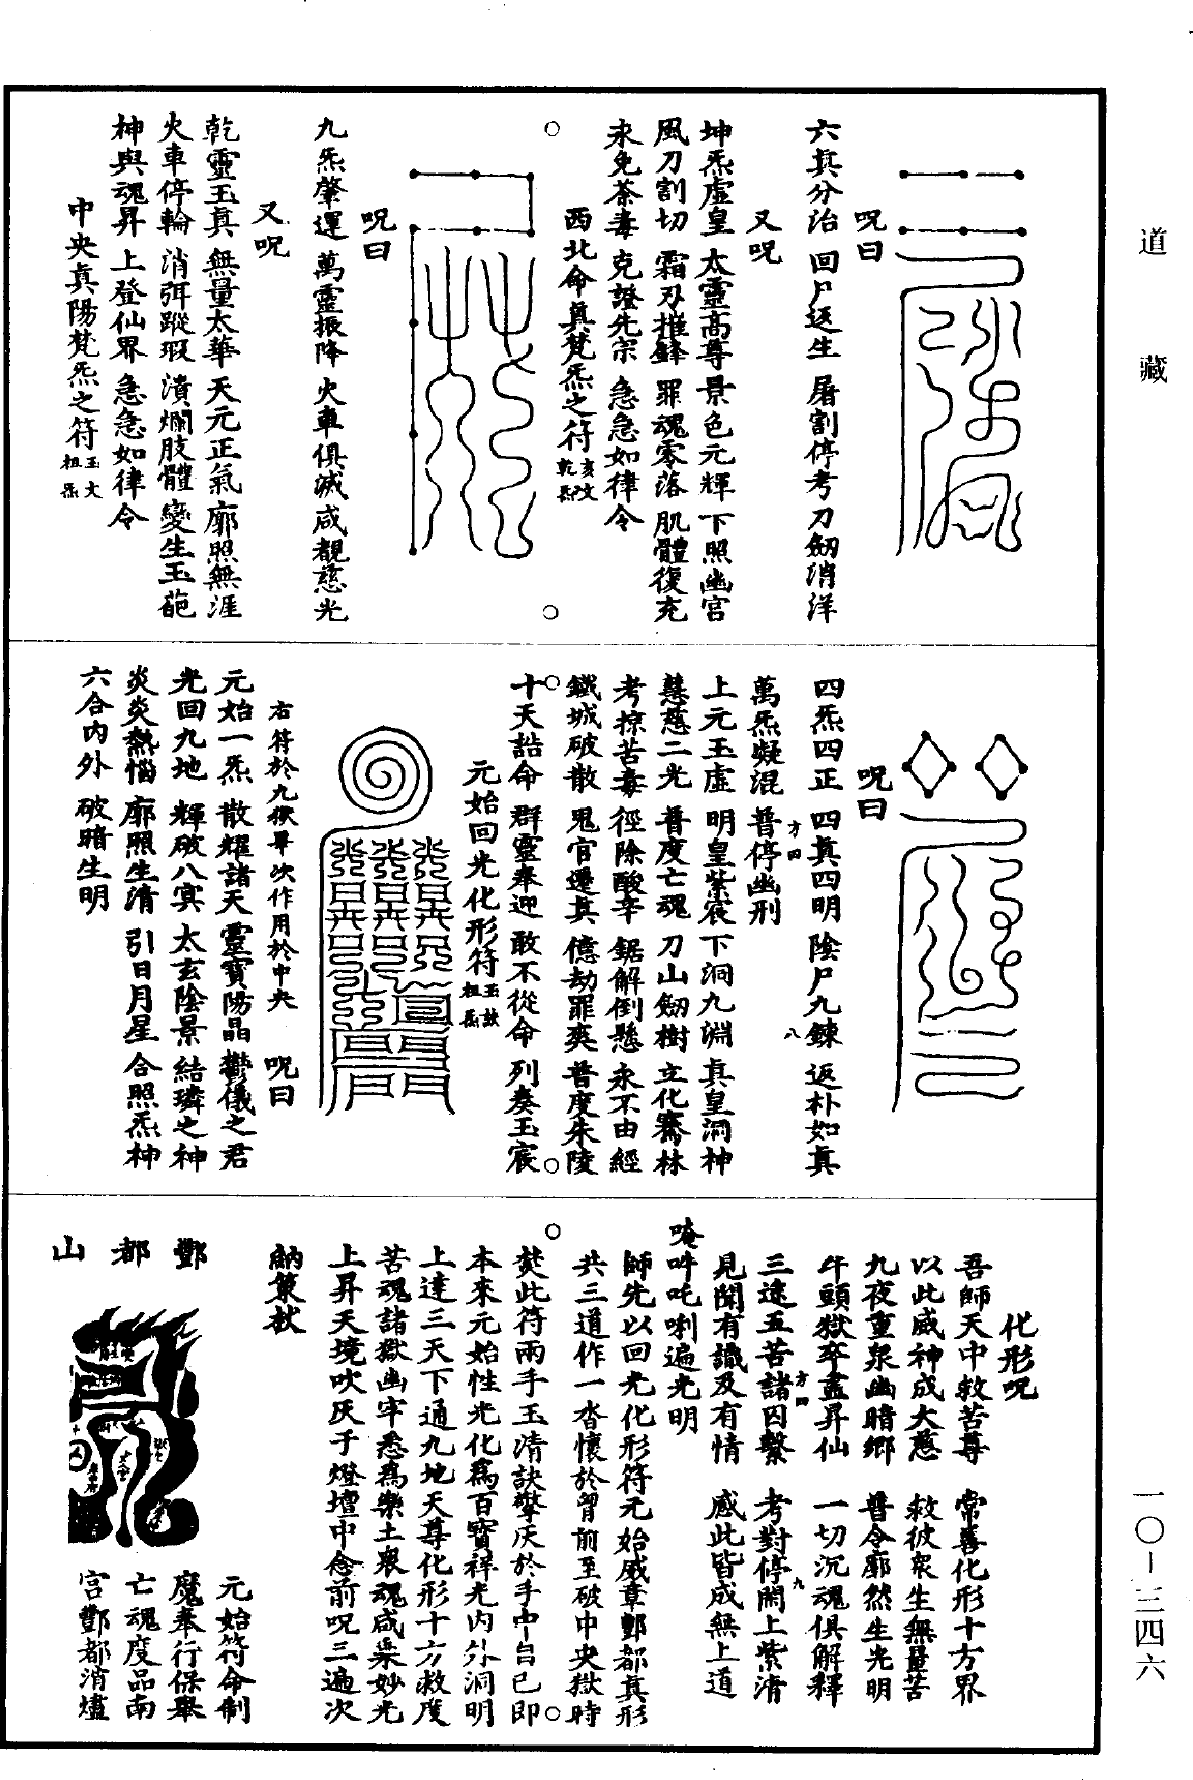 道藏
一〇—三四六
呪曰
六真分治 回尸返生 屠割停考 刀劒消洋
又呪
坤炁虛皇 太靈高尊 景色元輝 下照幽宮
風刀割切 霜刃摧鋒 罪魂零落 肌體復充
未免荼毒 克證先宗 急急如律令
西北命真梵炁之符 亥文乾炁
呪曰
九炁肇運 萬靈振降 火車俱滅 咸覩慈光
又呪
乾靈玉真 無量太華 天元正氣 廓照無涯
火車停輪 消弭蹤瑕 潰爛肢體 變生玉葩
神與魂昇 上登仙界 急急如律令
中央真陽梵炁之符 玉文祖炁
呪曰
四炁四正 四真四明 陰尸九鍊 返朴如真
萬炁凝混 普停幽刑
方四 八
上元玉虛 明皇紫宸 下洞九淵 真皇洞神
慧慈二光 普度亡魂 刀山劒樹 立化騫林
考掠苦毒 徑除酸辛 鋸解倒懸 永不由經
鐵城破散 鬼官遷真 億劫罪爽 普度朱陵
十天誥命 群靈奉迎 敢不從命 列奏玉宸
元始回光化形符 玉訣祖炁
右符於九獄畢次作用於中央 呪曰
元始一炁 散耀諸天 靈寶陽晶 鬱儀之君
光回九地 輝破八冥 太玄陰景 結璘之神
炎炎熱惱 廓照生清 引日月星 合照炁神
六合內外 破暗生明
化形呪
吾師天中救苦尊 常喜化形十方界
以此威神成大慈 救彼衆生無量苦
九夜重泉幽暗鄉 普令廓然生光明
牛頭獄卒盡昇仙 一切沉魂俱解釋
三途五苦諸囚繫 考對停閑上紫清
方四 九
見聞有識及有情 感此皆成無上道
唵吽吒唎遍光明
師先以回光化形符元始威章酆都真形
共三道作一沓懷於胷前至破中央獄時
焚此符兩手玉清訣擎灰於手中自己即
本來元始性光化為百寶祥光內外洞明
上達三天下通九地天尊化形十方救度
苦魂諸獄幽牢悉為樂土衆魂咸乘妙光
上昇天境吹灰于燈壇中念前呪三遍次
納策杖
酆都山
元始符命制
魔奉行保舉
亡魂度品南
宮酆都消燼